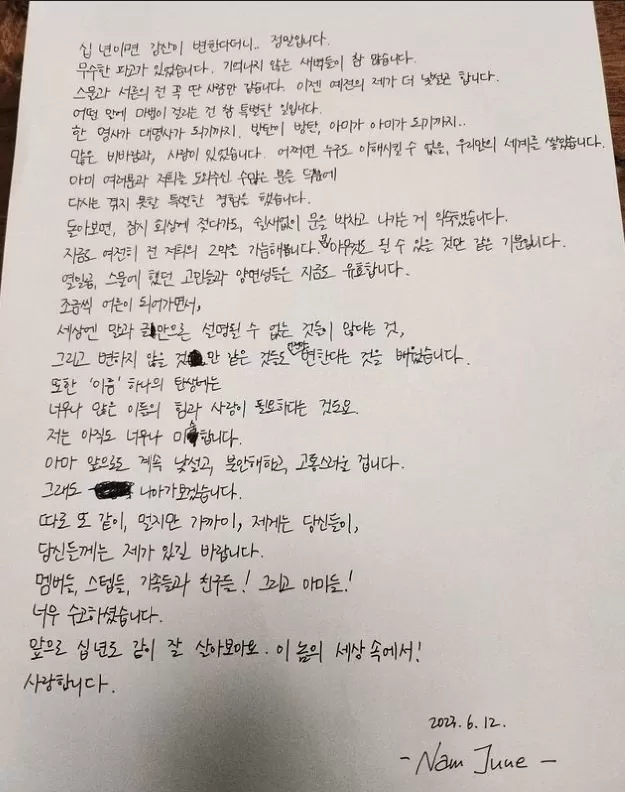 십 년이면 강산이 변한다더니.. 정말입니다.
무수한 파고가 있었습니다. 기억나지 않는 새벽들이 참 많습니다.
스물과 서른의 전 꼭 딴 사람만 같습니다. 이젠 예전의 제가 더 낯설곤 합니다.
어떤 말에 마법이 걸리는 건 참 특별한 일입니다.
한 명사가 대명사가 되기까지. 방탄이 방탄, 아미가 아미가 되기까지..
많은 비바람과, 사랑이 있었습니다. 어쩌면 누구도 이해시킬 수 없을, 우리만의 세계를 쌓았습니다.
아미 여러분과 저희를 도와주신 수많은 분들 덕분에
다시는 겪지 못할 특별한 경험을 했습니다.
돌아보면, 잠시 회상에 젖다가도, 쉴새없이 문을 박차고 나가는 게 익숙했습니다.
지금도 여전히 전 저희의 2막을 가늠해봅니다. 뭐 아무거나 될 수 있을 것만 같은 기분입니다.
열일곱, 스물에 했던 고민들과 양면성들은 지금도 유효합니다.
조금씩 어른이 되어가면서,
세상엔 말과 글만으론 설명될 수 없는 것들이 많다는 것,
그리고 변하지 않을 것만 같은 것들도 변한다는 것을 배웠습니다.
또한 '이름' 하나의 탄생에는
너무나 많은 이들의 힘과 사랑이 필요하다는 것도요.
저는 아직도 너무나 미숙합니다.
아마 앞으로도 계속 낯설고, 불안해하고, 고통스러울 겁니다.
그래도 나아가보겠습니다.
따로 또 같이, 멀지만 가까이, 제게는 당신들이,
당신들께는 제가 있길 바랍니다.
멤버들, 스텝들, 가족들과 친구들! 그리고 아미들!
너무 수고하셨습니다.
앞으로 십 년도 같이 잘 살아보아요. 이 놈의 세상 속에서!
사랑합니다.
2023. 6. 12.
- Nam June -